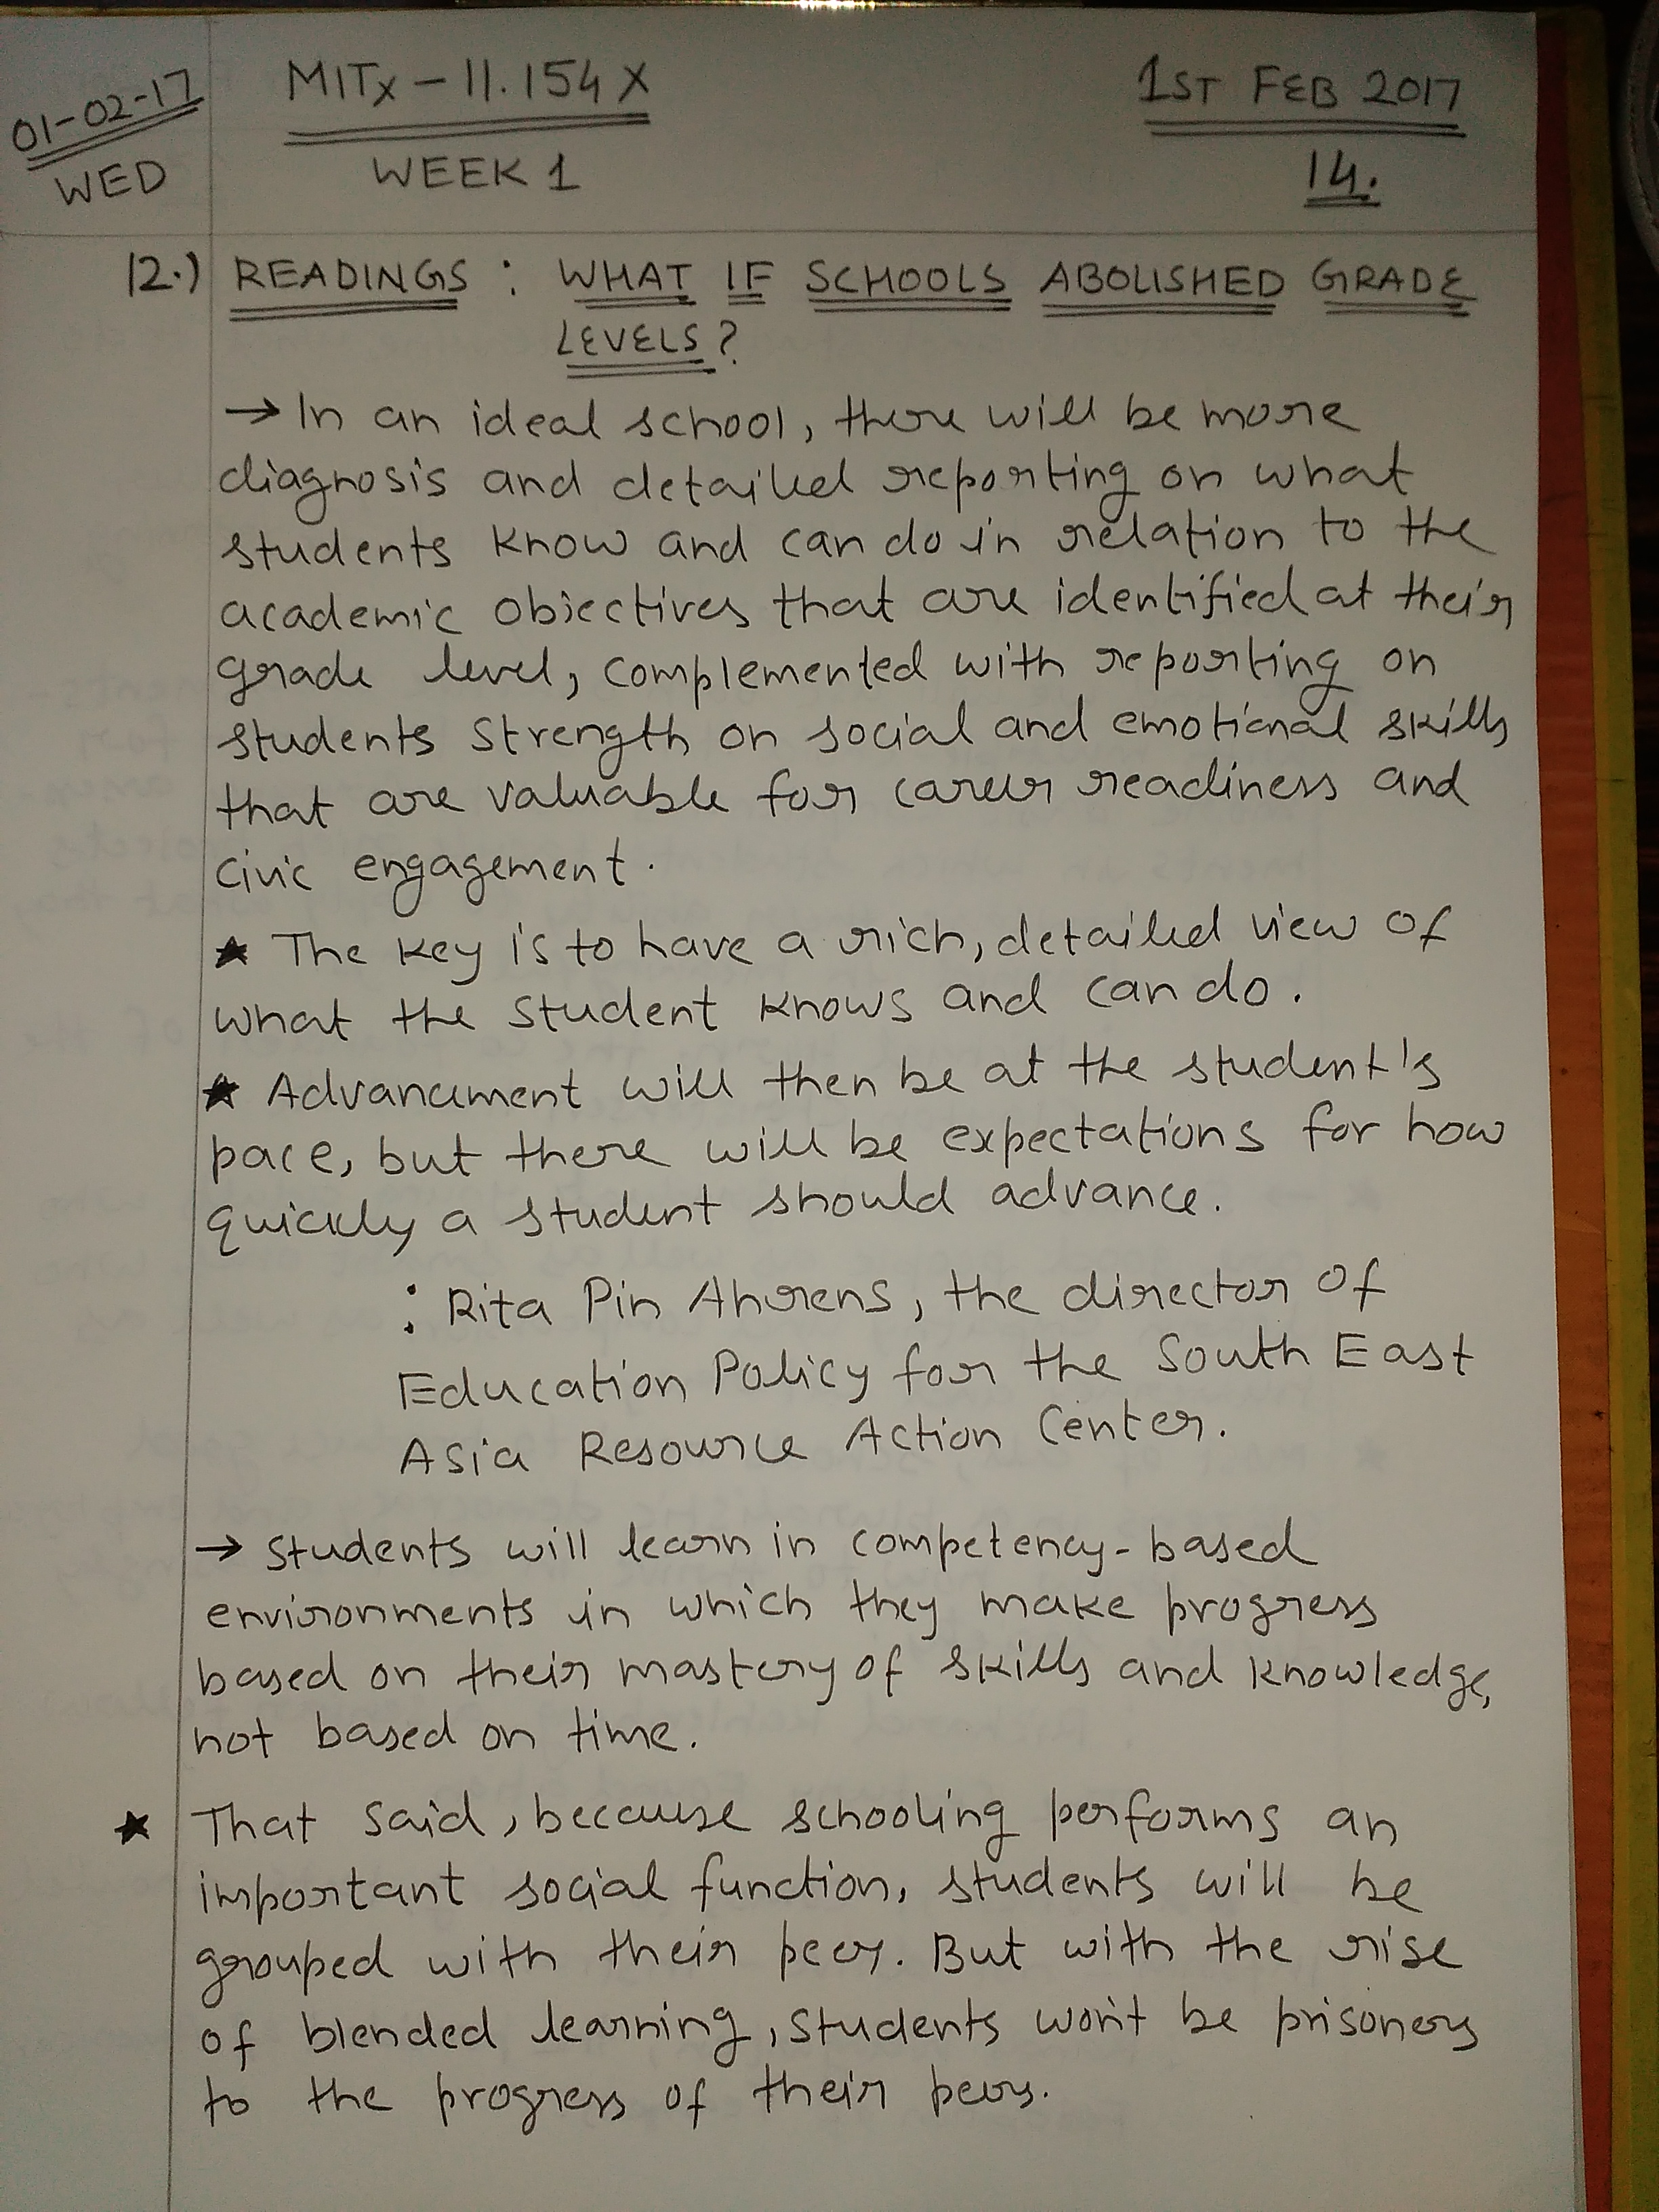 01-02-17
WED
MITx - 11.154 X
WEEK 1
1ST FEB 2017
14.
12.) READINGS : WHAT IF SCHOOLS ABOLISHED GRADE
LEVELS?
→ In an ideal school, there will be more
diagnosis and detailed reporting on what
students know and can do in relation to the
academic objectives that are identified at their
grade level, complemented with reporting on
students strength on social and emotional skills
that are valuable for career readiness and
civic engagement.
★ The key is to have a rich, detailed view of
what the student knows and can do.
★ Advancement will then be at the student's
pace, but there will be expectations for how
quickly a student should advance.
: Rita Pin Ahrens, the director of
Education Policy for the South East
Asia Resource Action Center.
→ Students will learn in competency-based
environments in which they make progress
based on their mastery of skills and knowledge,
not based on time.
★ That said, because schooling performs an
important social function, students will be
grouped with their peers. But with the rise
of blended learning, students won't be prisoners
to the progress of their peers.